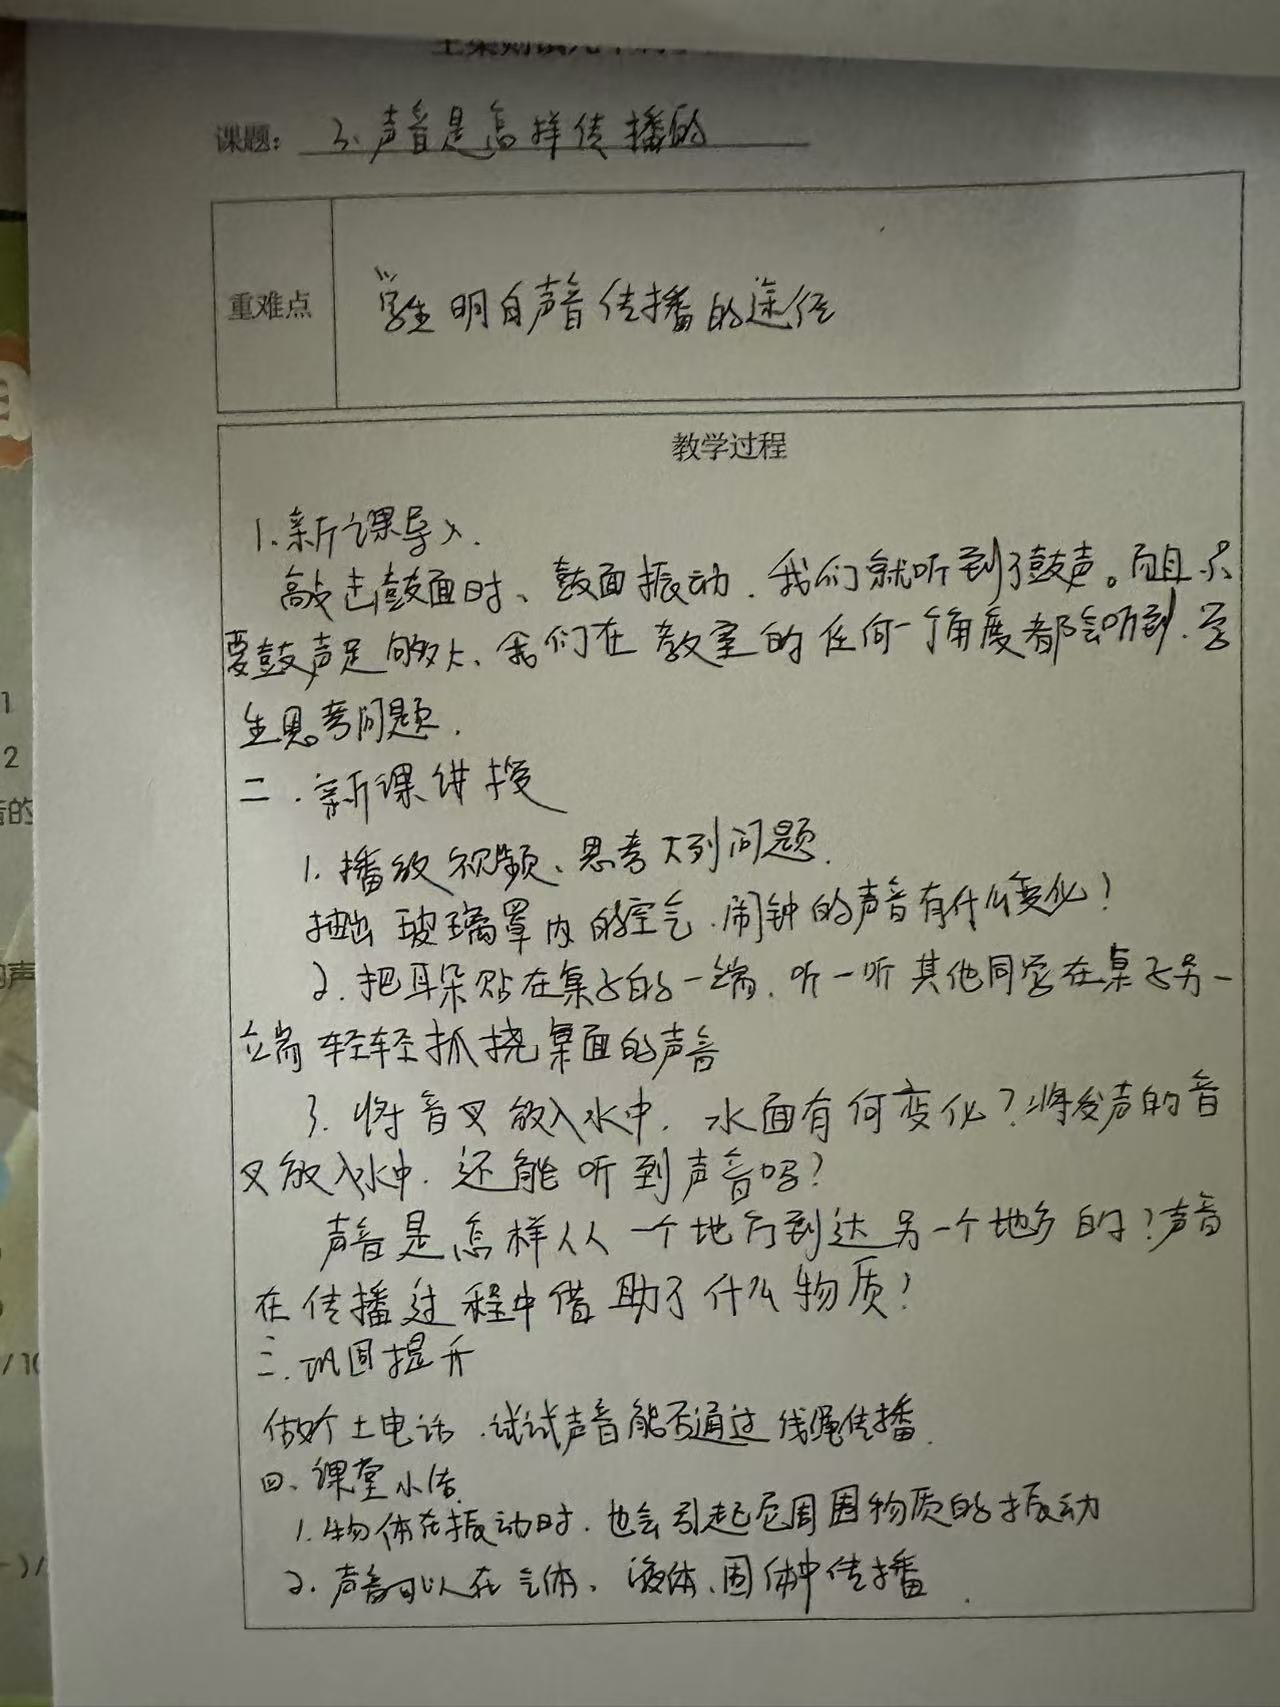 课题: 3.声音是怎样传播的
重难点
学生明白声音传播的途径
教学过程
1.新课导入.
敲击鼓面时、鼓面振动.我们就听到了鼓声。而且只
要鼓声足够大、我们在教室的任何一个角度都会听到.学
生思考问题.
二.新课讲授
1.播放视频、思考下列问题.
抽出玻璃罩内的空气.闹钟的声音有什么变化?
2.把耳朵贴在桌子的一端.听一听其他同学在桌子另一
端轻轻抓挠桌面的声音
3.将音叉放入水中.水面有何变化?将发声的音
叉放入水中.还能听到声音吗?
声音是怎样从一个地方到达另一个地方的?声音
在传播过程中借助了什么物质?
三.巩固提升
做个土电话.试试声音能否通过线绳传播.
四、课堂小结
1.物体在振动时.也会引起它周围物质的振动
2.声音可以在气体、液体、固体中传播.
1
2
音的
的声
/10